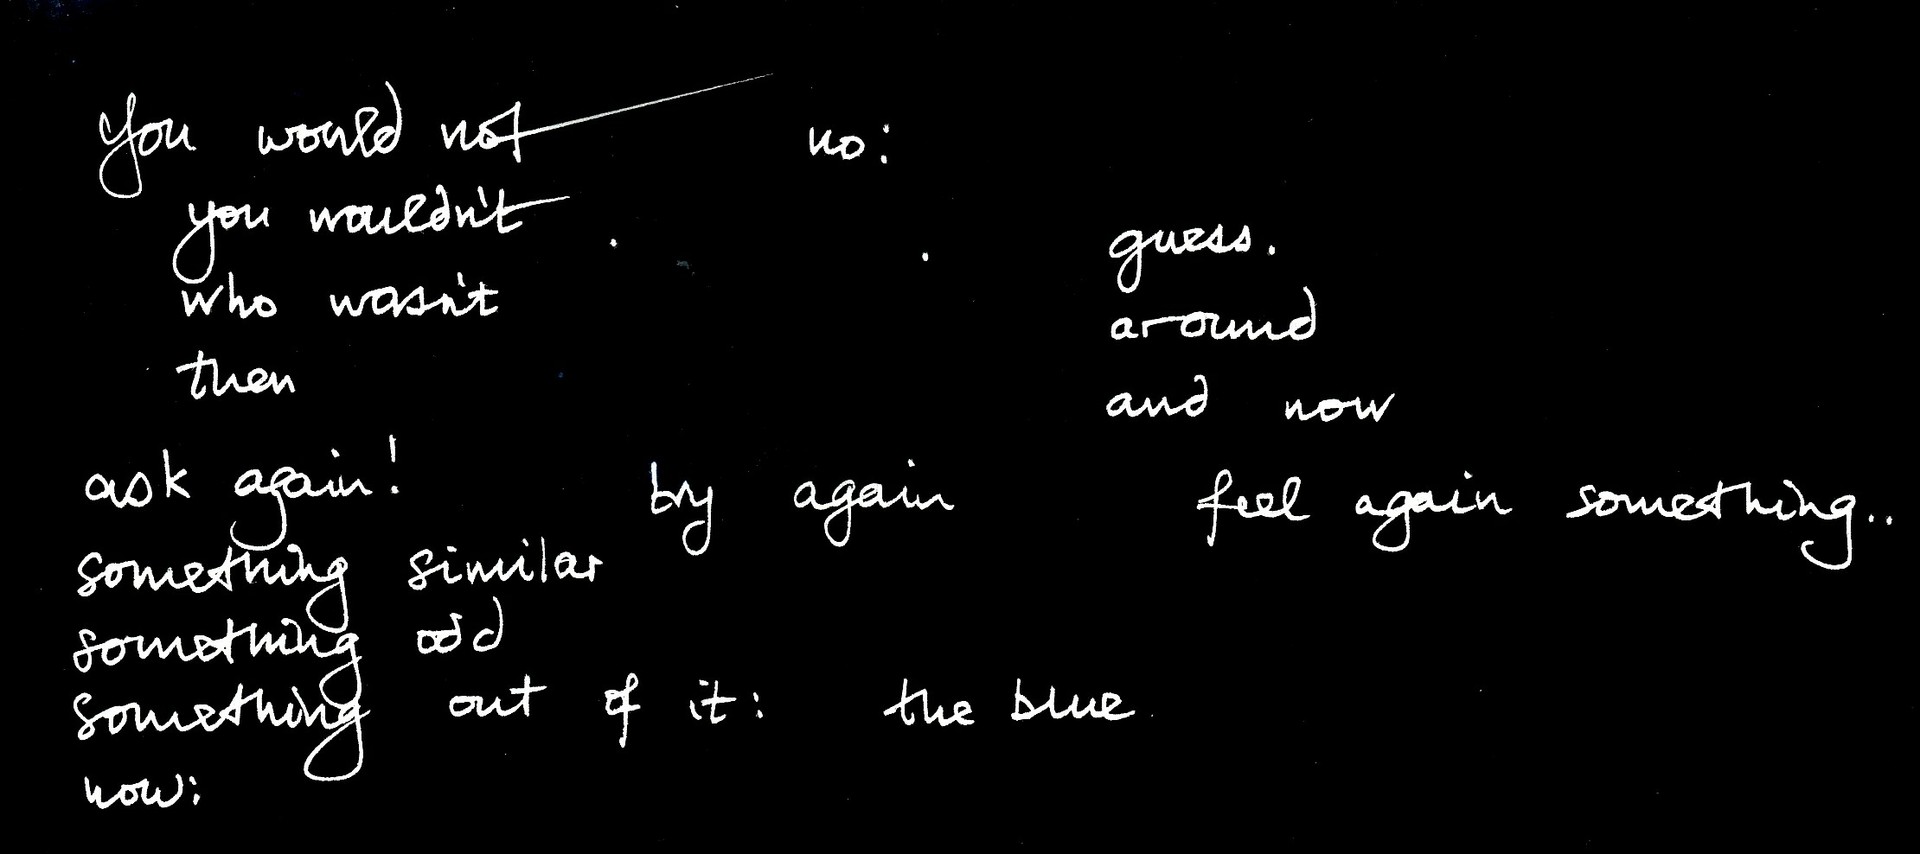 You would not no:
you wouldn't guess.
who wasn't around
then and now
ask again! try again feel again something..
something similar
something odd
something out of it: the blue
now: